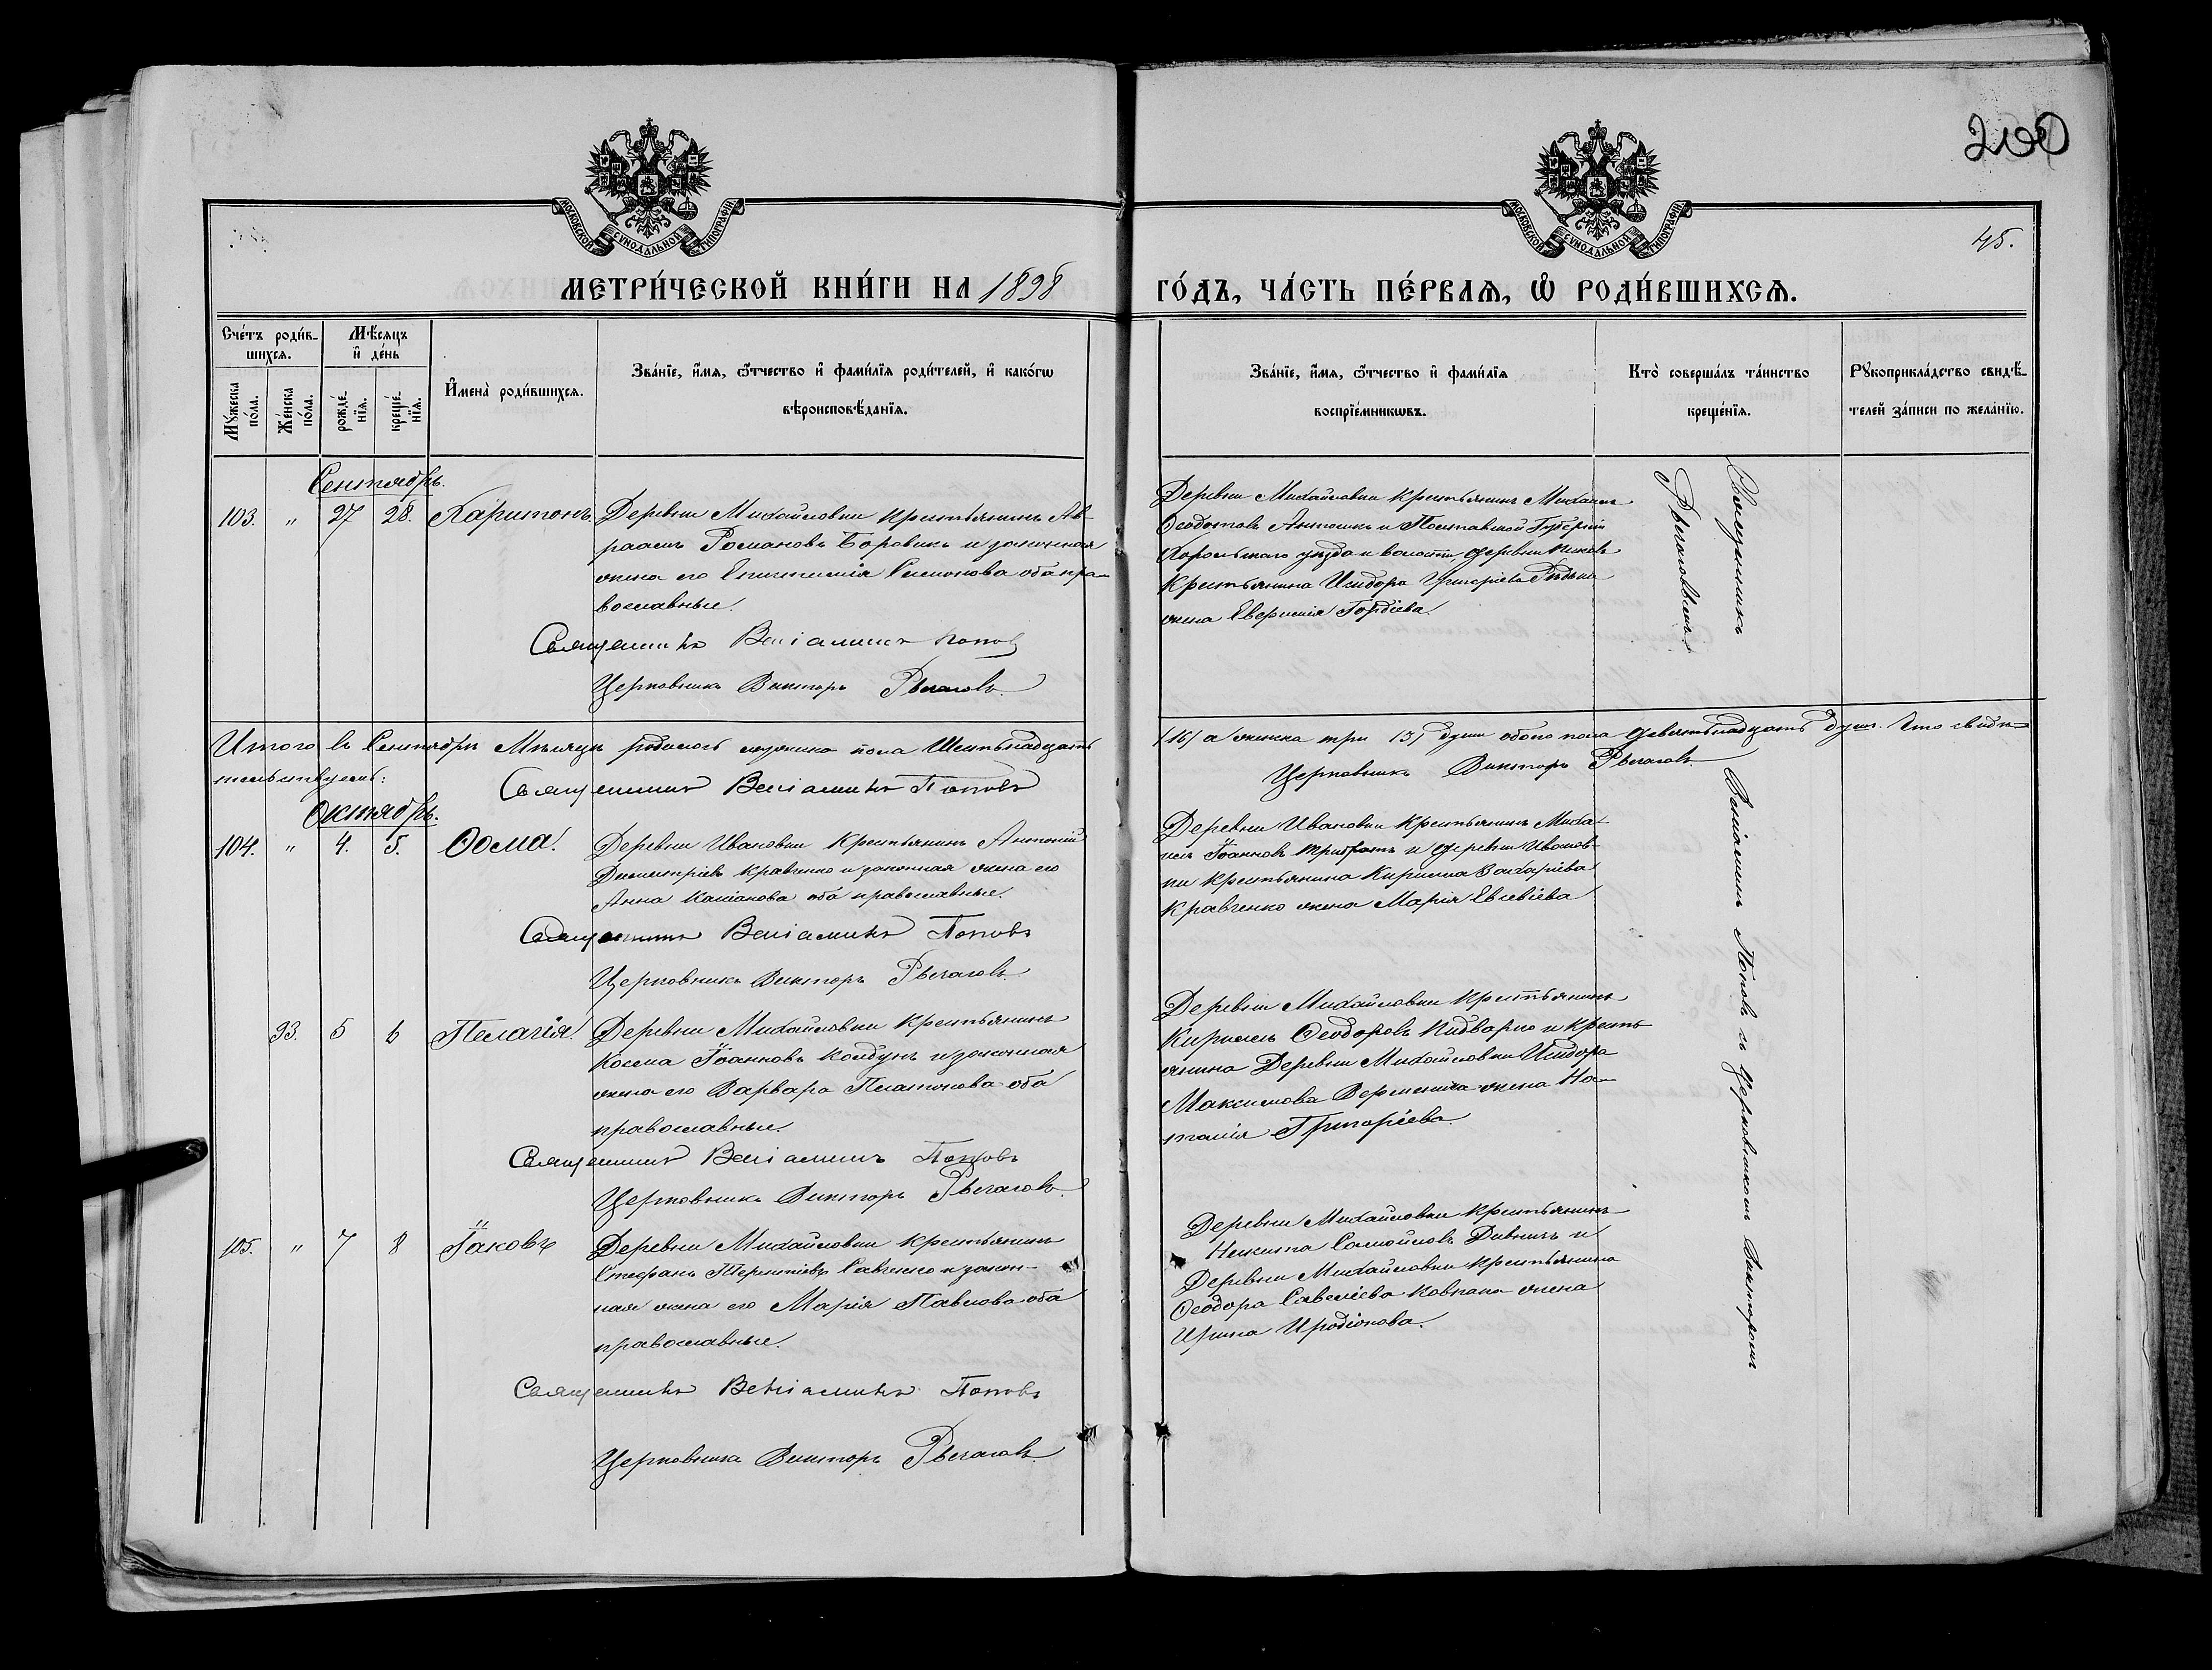 200
45.
МОСКОВСКОЙ СѴНОДАЛЬНОЙ ТИПОГРАФІИ
МОСКОВСКОЙ СѴНОДАЛЬНОЙ ТИПОГРАФІИ
МЕТРИ́ЧЕСКОЙ КНИ́ГИ НА 1898
ГО́ДЪ, ЧА́СТЬ ПЕ́РВАѦ, Ѡ҆ РОДИ́ВШИХСѦ.
Сче́тъ роди́в-
шихсѧ.
Мѣ́сѧцъ
и҆ де́нь
Мꙋ́жеска
по́ла.
Же́нска
по́ла.
рожде́-
нїѧ.
креще́-
нїѧ.
И҆мена̀ роди́вшихсѧ.
Зва́нїе, и҆́мѧ, ѻ҆́тчество и҆ фами́лїѧ роди́телей, и҆ како́гѡ
вѣроисповѣ́данїѧ.
Зва́нїе, и҆́мѧ, ѻ҆́тчество и҆ фами́лїѧ
воспрїе́мникѡвъ.
Кто̀ соверша́лъ та́инство
креще́нїѧ.
Рꙋкоприкла́дство свидѣ́-
телей за́писи по жела́нїю.
Сентябрь.
103. " 27 28. Харитонъ.
Деревни Михайловки крестьянинъ Ав-
раамъ Романовъ Боровикъ и законная
жена его Епистимія Симонова оба пра-
вославные.
Священникъ Веніаминъ Поповъ
Церковникъ Викторъ Рычаговъ.
Деревни Михайловки крестьянинъ Михаилъ
Ѳеодотовъ и Полтавской Губерніи
Хорольскаго уѣзда и волости, деревни
крестьянина Исидора Григоріева
жена Гордіева.
Священникъ
Итого въ Сентябрѣ Мѣсяцѣ родилось мужска пола Шестьнадцать
/16/ а женска три /3/ души обоего пола девятьнадцать душъ. Что свидѣ-
тельствуемъ:
Священникъ Веніаминъ Поповъ
Церковникъ Викторъ Рычаговъ.
Октябрь.
104. " 4. 5. Ѳома.
Деревни Ивановки крестьянинъ Антоній
Димитріевъ Кравченко и законная жена его
Анна Касіанова оба православные.
Священникъ Веніаминъ Поповъ
Церковникъ Викторъ Рычаговъ.
Деревни Ивановки крестьянинъ Миха-
илъ Іоанновъ и деревни Иванов-
ки крестьянина Кирилла Захаріева
Кравченко жена Марія Евсевіева
93. 5 6 Пелагія.
Деревни Михайловки крестьянинъ
Косма Іоанновъ Колдунъ и законная
жена его Варвара Платонова оба
православные.
Священникъ Веніаминъ Поповъ
Церковникъ Викторъ Рычаговъ.
Деревни Михайловки крестьянинъ
Кириллъ Ѳеодоровъ и кресть-
янина Деревни Михайловки Исидора
Максимова жена На-
талія Григоріева.
105. " 7 8 Іаковъ
Деревни Михайловки крестьянинъ
Стефанъ Терентіевъ Савченко и закон-
ная жена его Марія Павлова оба
православные.
Священникъ Веніаминъ Поповъ
Церковникъ Викторъ Рычаговъ.
Деревни Михайловки крестьянинъ
Никита Самойловъ и
Деревни Михайловки крестьянина
Ѳеодора Савеліева жена
Ирина Иродіонова.
Веніаминъ Поповъ съ церковникомъ Викторомъ
Рычаговымъ.